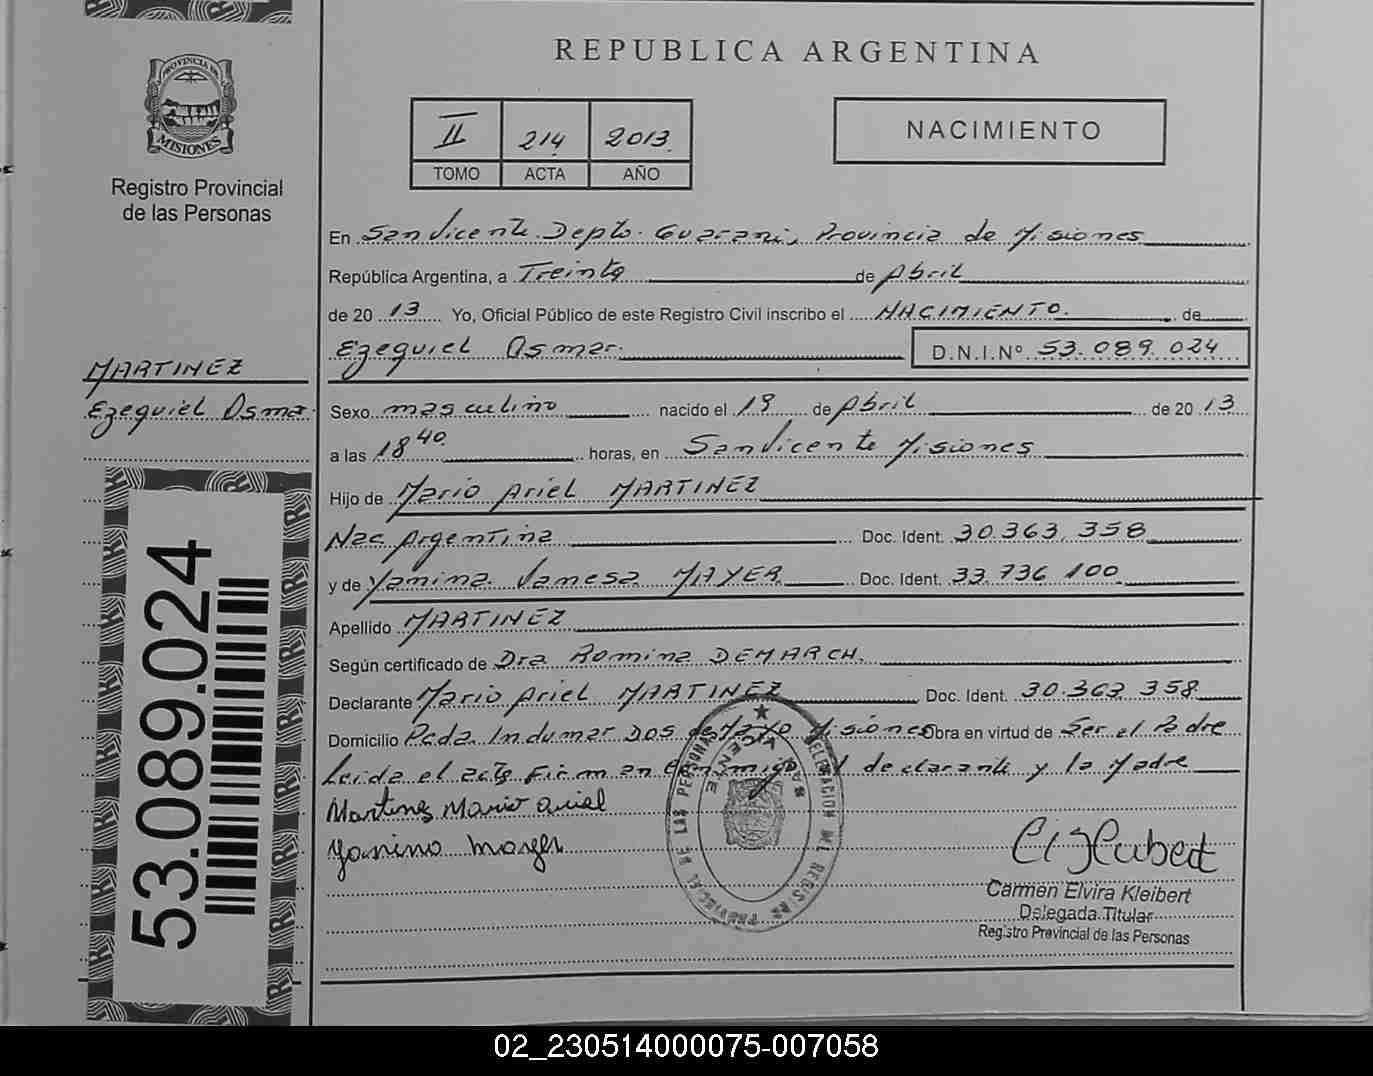 REPUBLICA ARGENTINA
PROVINCIA DE
MISIONES
Registro Provincial
de las Personas
II 214 2013
TOMO ACTA AÑO
NACIMIENTO
En San Vicente Depto. Guarani, Provincia de Misiones
República Argentina, a Treinta de Abril
de 20 13 Yo, Oficial Público de este Registro Civil inscribo el NACIMIENTO. de
Ezequiel Osmar. D.N.I.Nº 53.089.024
MARTINEZ
Ezequiel Osmar
Sexo masculino nacido el 19 de Abril de 20 13
a las 18 40 horas, en San Vicente Misiones
Hijo de Mario Ariel MARTINEZ
Nac Argentina Doc. Ident. 30.363.358
y de Yanina Vanesa MAYER Doc. Ident. 33.736 100
Apellido MARTINEZ
Según certificado de Dra Romina DEMARCH.
Declarante Mario Ariel MARTINEZ Doc. Ident. 30.363 358
Domicilio Pcda. Indumar Dos de Mayo Misiones Obra en virtud de Ser el Padre
Leida el acta Firman conmigo el declarante y la Madre
Martinez Mario ariel
Yanina Mayer
53.089.024
DELEGACION DEL REGISTRO PROVINCIAL DE LAS PERSONAS
SAN VICENTE
Carmen Elvira Kleibert
Delegada Titular
Registro Provincial de las Personas
02_230514000075-007058